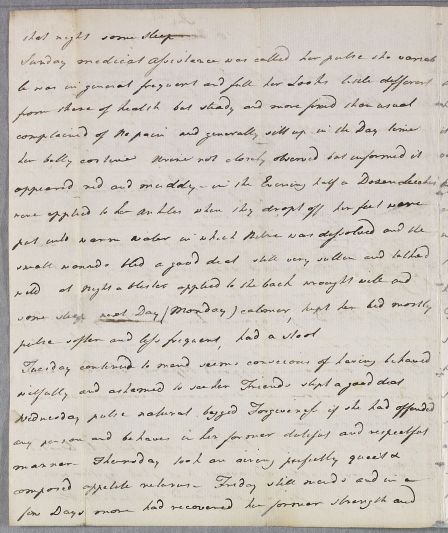 that night some sleep
Sunday medical assistance was called her pulse tho variab
le was in general frequent and full her Looks little different
from those of health but steady and more fixed than usual
complained of No pain and generally sett up in the Day time
her belly costive Urine not closely observed but informed it
appeared red and muddy - in the Evening half a Dozen Leeches
were applied to her Ankles when they dropt off her feet were
put into warm water in which Nitre was dissolved and the
small wounds bled a good deal still very sullen and talked
wild at Night a blister applied to the back wrought well and
some sleep next Day (Monday) calomer, kept her bed mostly
pulse softer and less frequent, had a stool
Tuesday continued to mend seems conscious of having behaved
wilfully and ashamed to see her Friends slept a good deal
Wednesday pulse natural begged Forgiveness if she had offended
any person and behaves in her former dutiful and respectful
manner Thursday took an airing perfectly quiet &
composed appetite returns - Friday still mends and in a
few Days more had recovered her former strength and